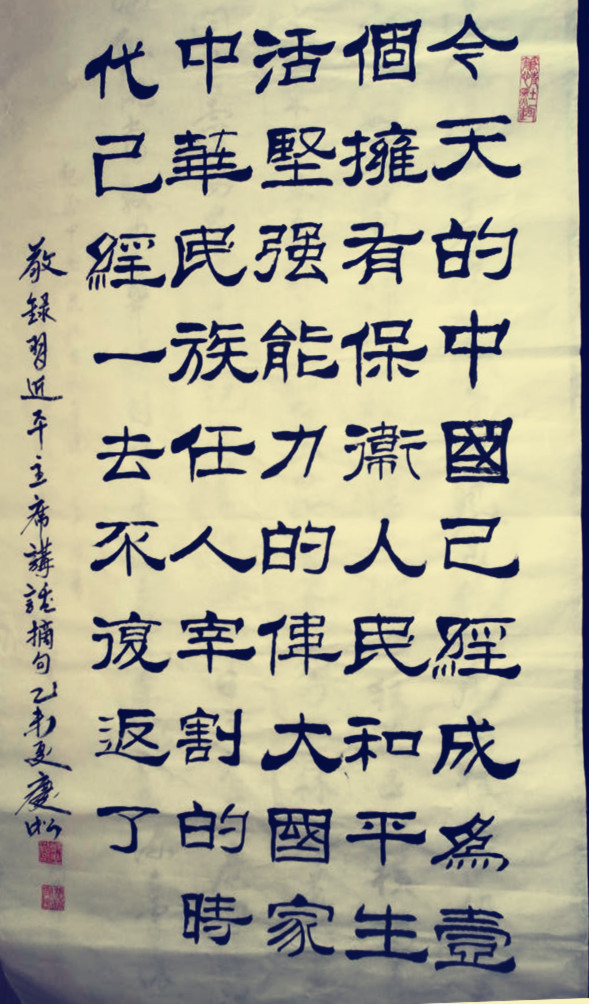 今天的中國己經成為壹
個擁有保衛人民和平生
活堅强能力的偉大國家
中華民族任人宰割的時
代己經一去不復返了
敬録習近平主席講話摘句乙未夏慶松